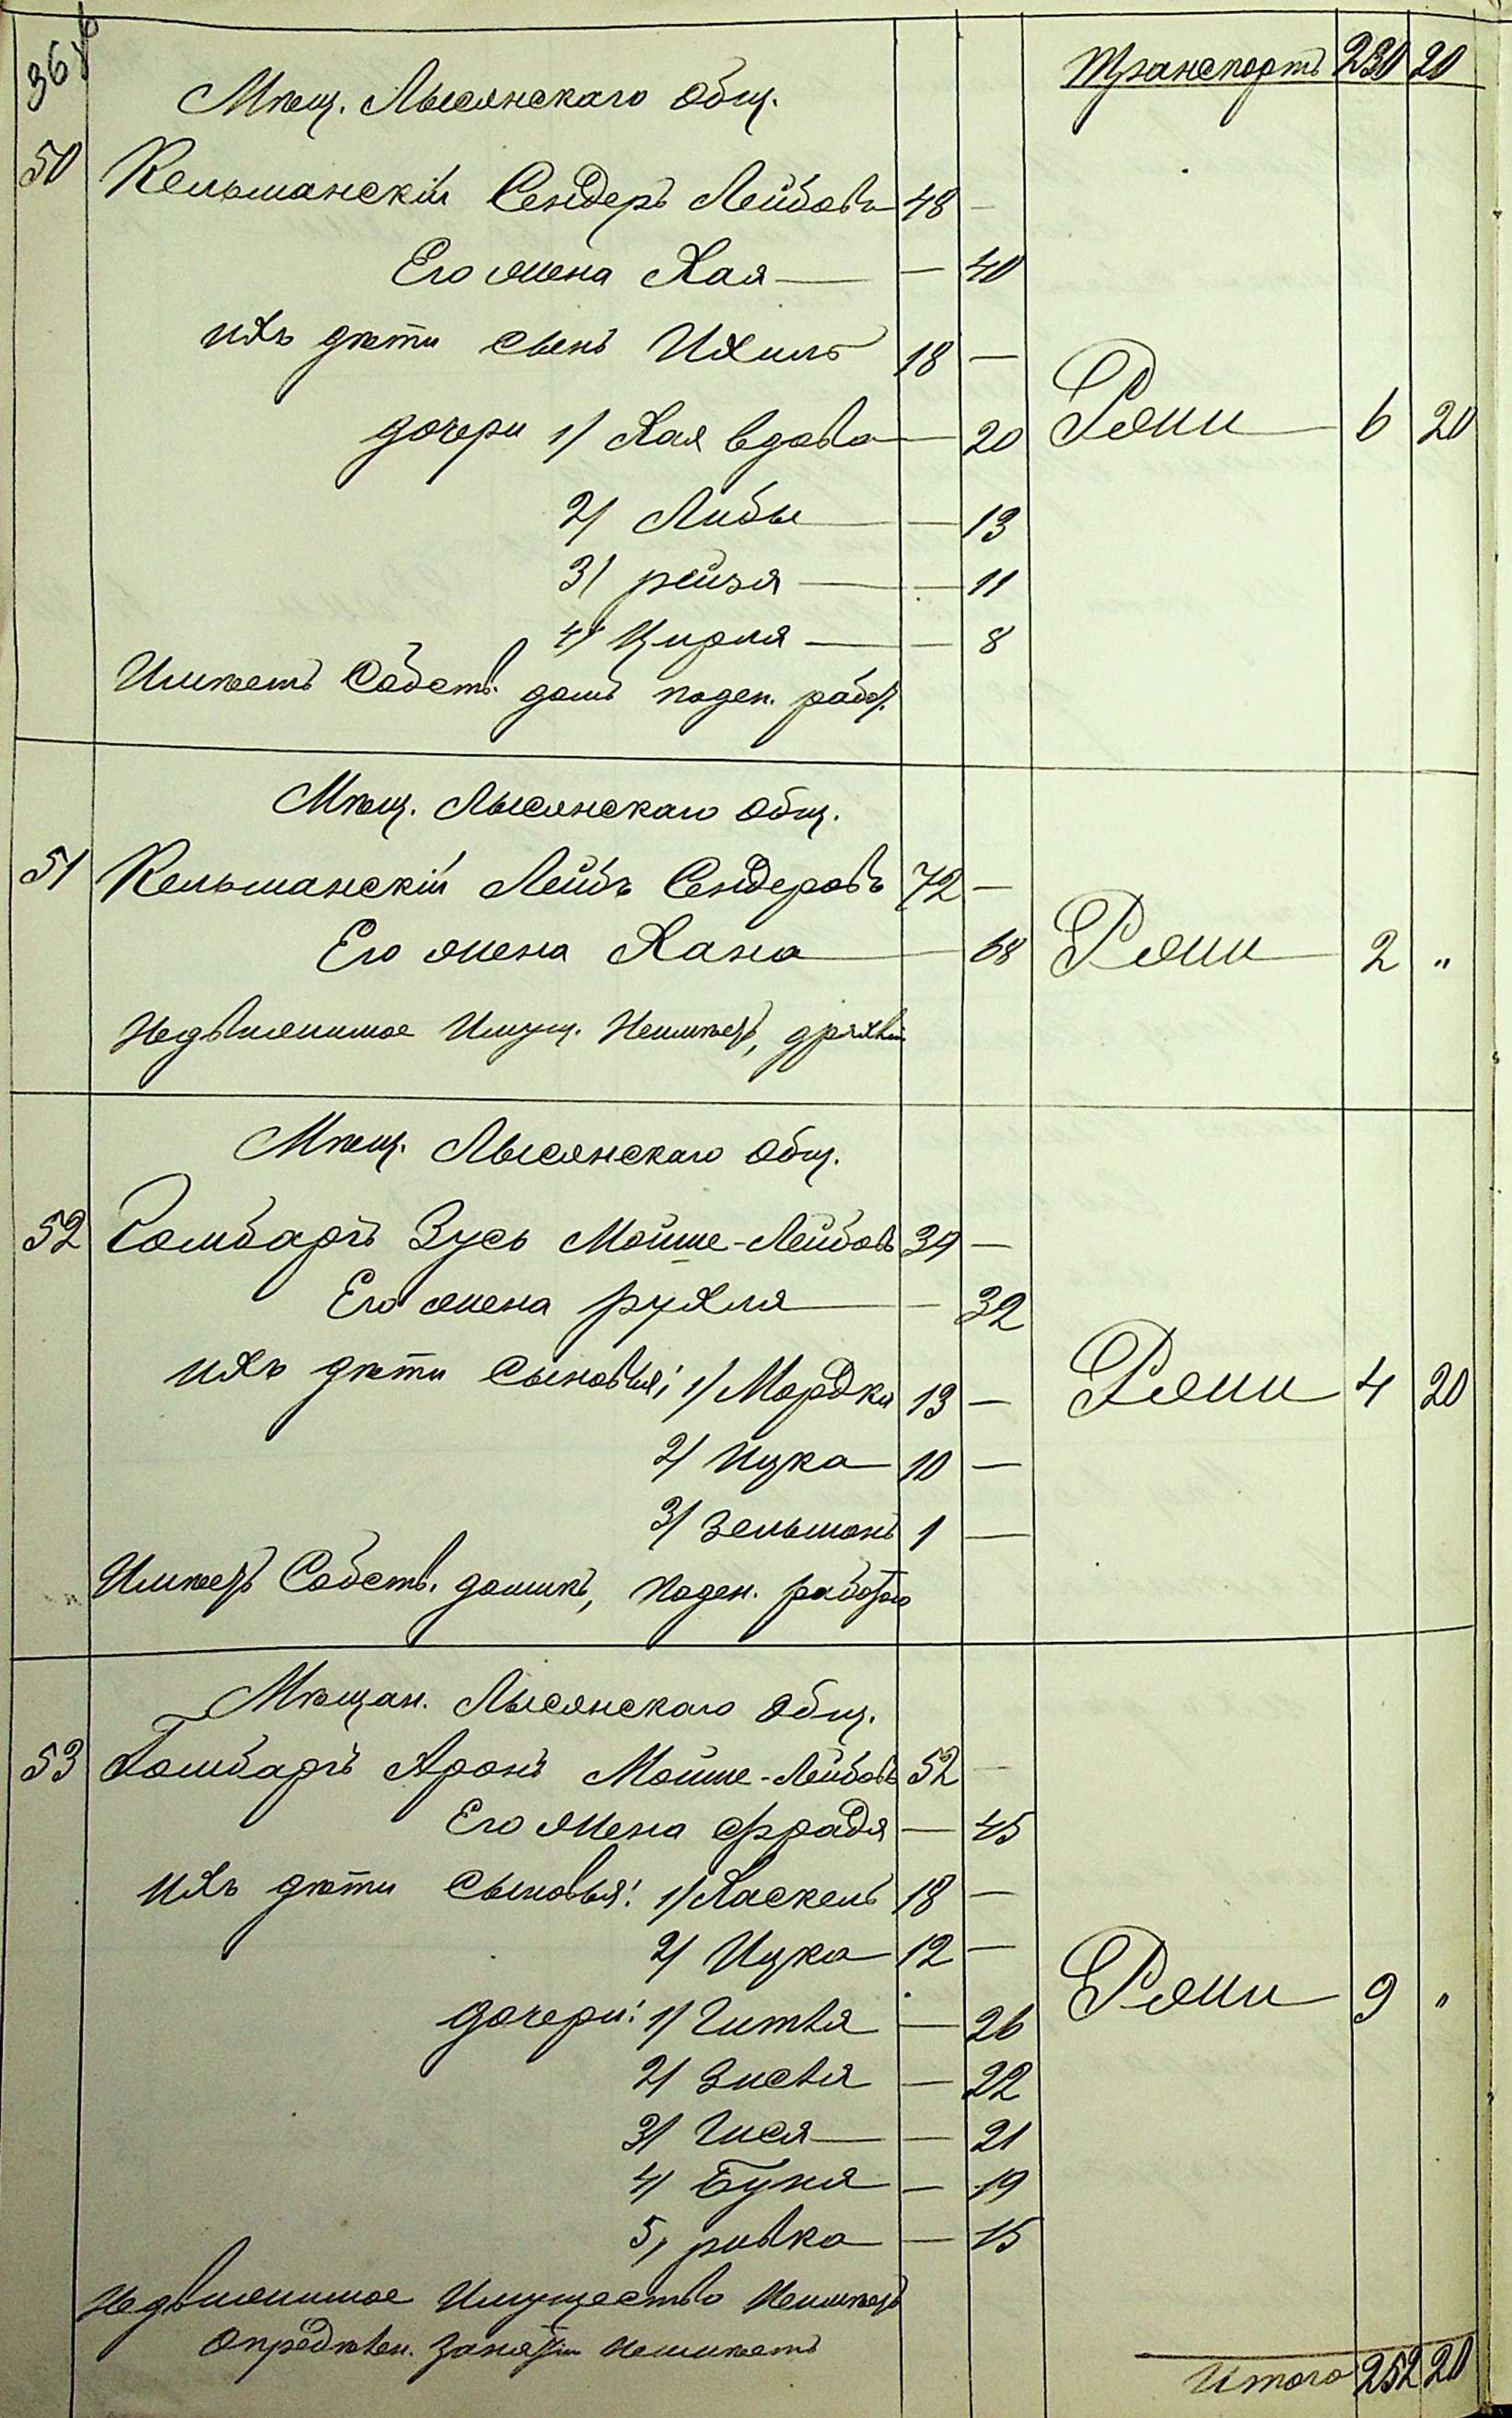 Транспортъ 230 20
Мѣщ. Лысянскаго общ.
50 Кельманскій Сендеръ Лейбовъ 48 —
Его жена Хая — 40
ихъ дѣти сынъ Ихиль 18 —
дочери 1/ Хая вдова — 20
6 20
2/ Либы — 13
3/ рейзя — 11
4/ Цирля — 8
Имѣетъ Собств. домъ поден. рабо.
Мѣщ. Лысянскаго общ.
51 Кельманскій Лейбъ Сендеровъ 72 —
Его жена Хана — 68
2 "
Недвижимое Имущ. Неимѣетъ, дряхлый
Мѣщ. Лысянскаго общ.
52 Гомбаръ Зусь Мойше-Лейбовъ 34 —
Его жена рухля — 32
ихъ дѣти сыновья; 1/ Мордко 13 —
4 20
2/ Ицко 10 —
3/ Зельманъ 1 —
Имѣетъ Собств. домикъ, поден. работою
Мѣщан. Лысянскаго общ.
53 Гомбаръ Аронъ Мойше-Лейбовъ 52 —
Его жена фрадя — 45
ихъ дѣти сыновья: 1/ Хаскель 18 —
2/ Ицко 12 —
9 "
дочери: 1/ Гитля — 26
2/ Зисля — 22
3/ Гися — 21
4/ Буня — 19
5, ривка — 15
Недвижимое Имущество Неимѣетъ
Опредѣлен. Занятій неимѣетъ
Итого 252 20